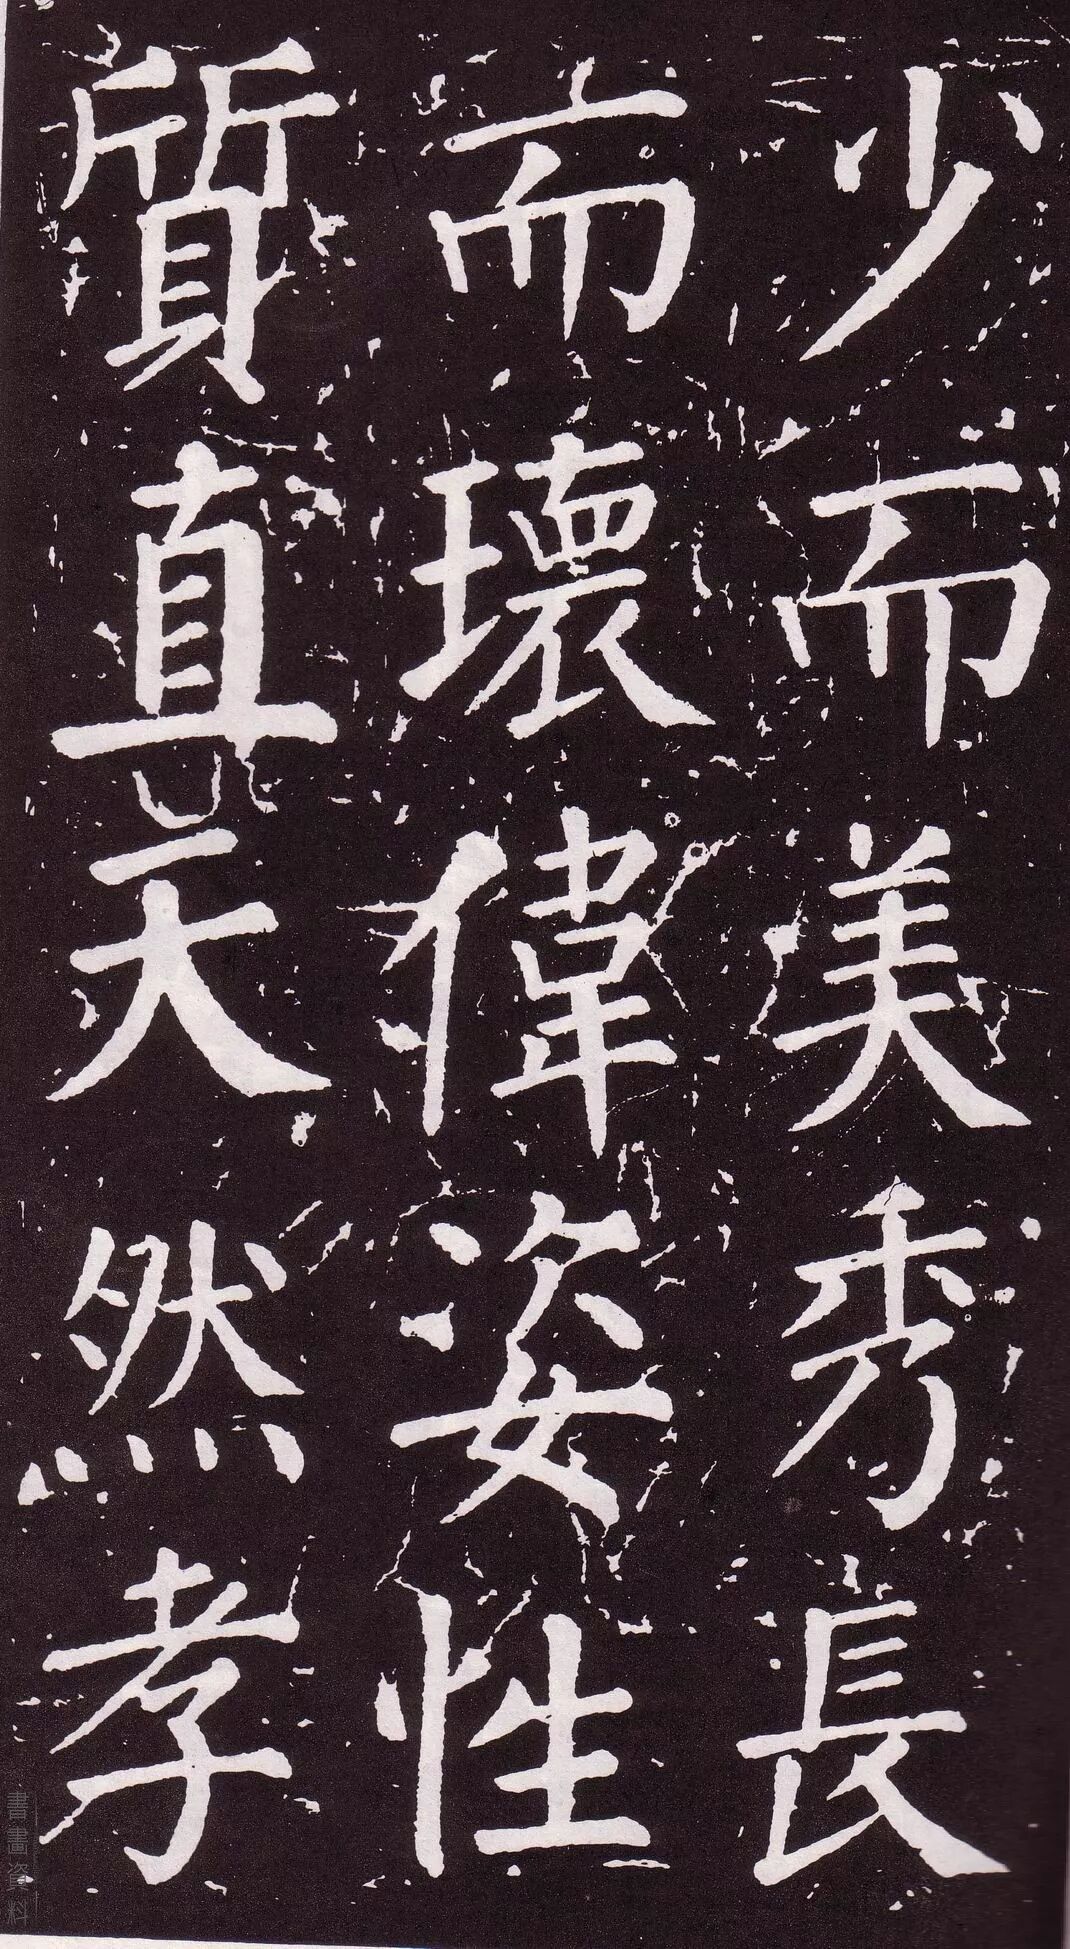 少而美秀長
而瓌偉姿性
質直天然孝
書畫資料